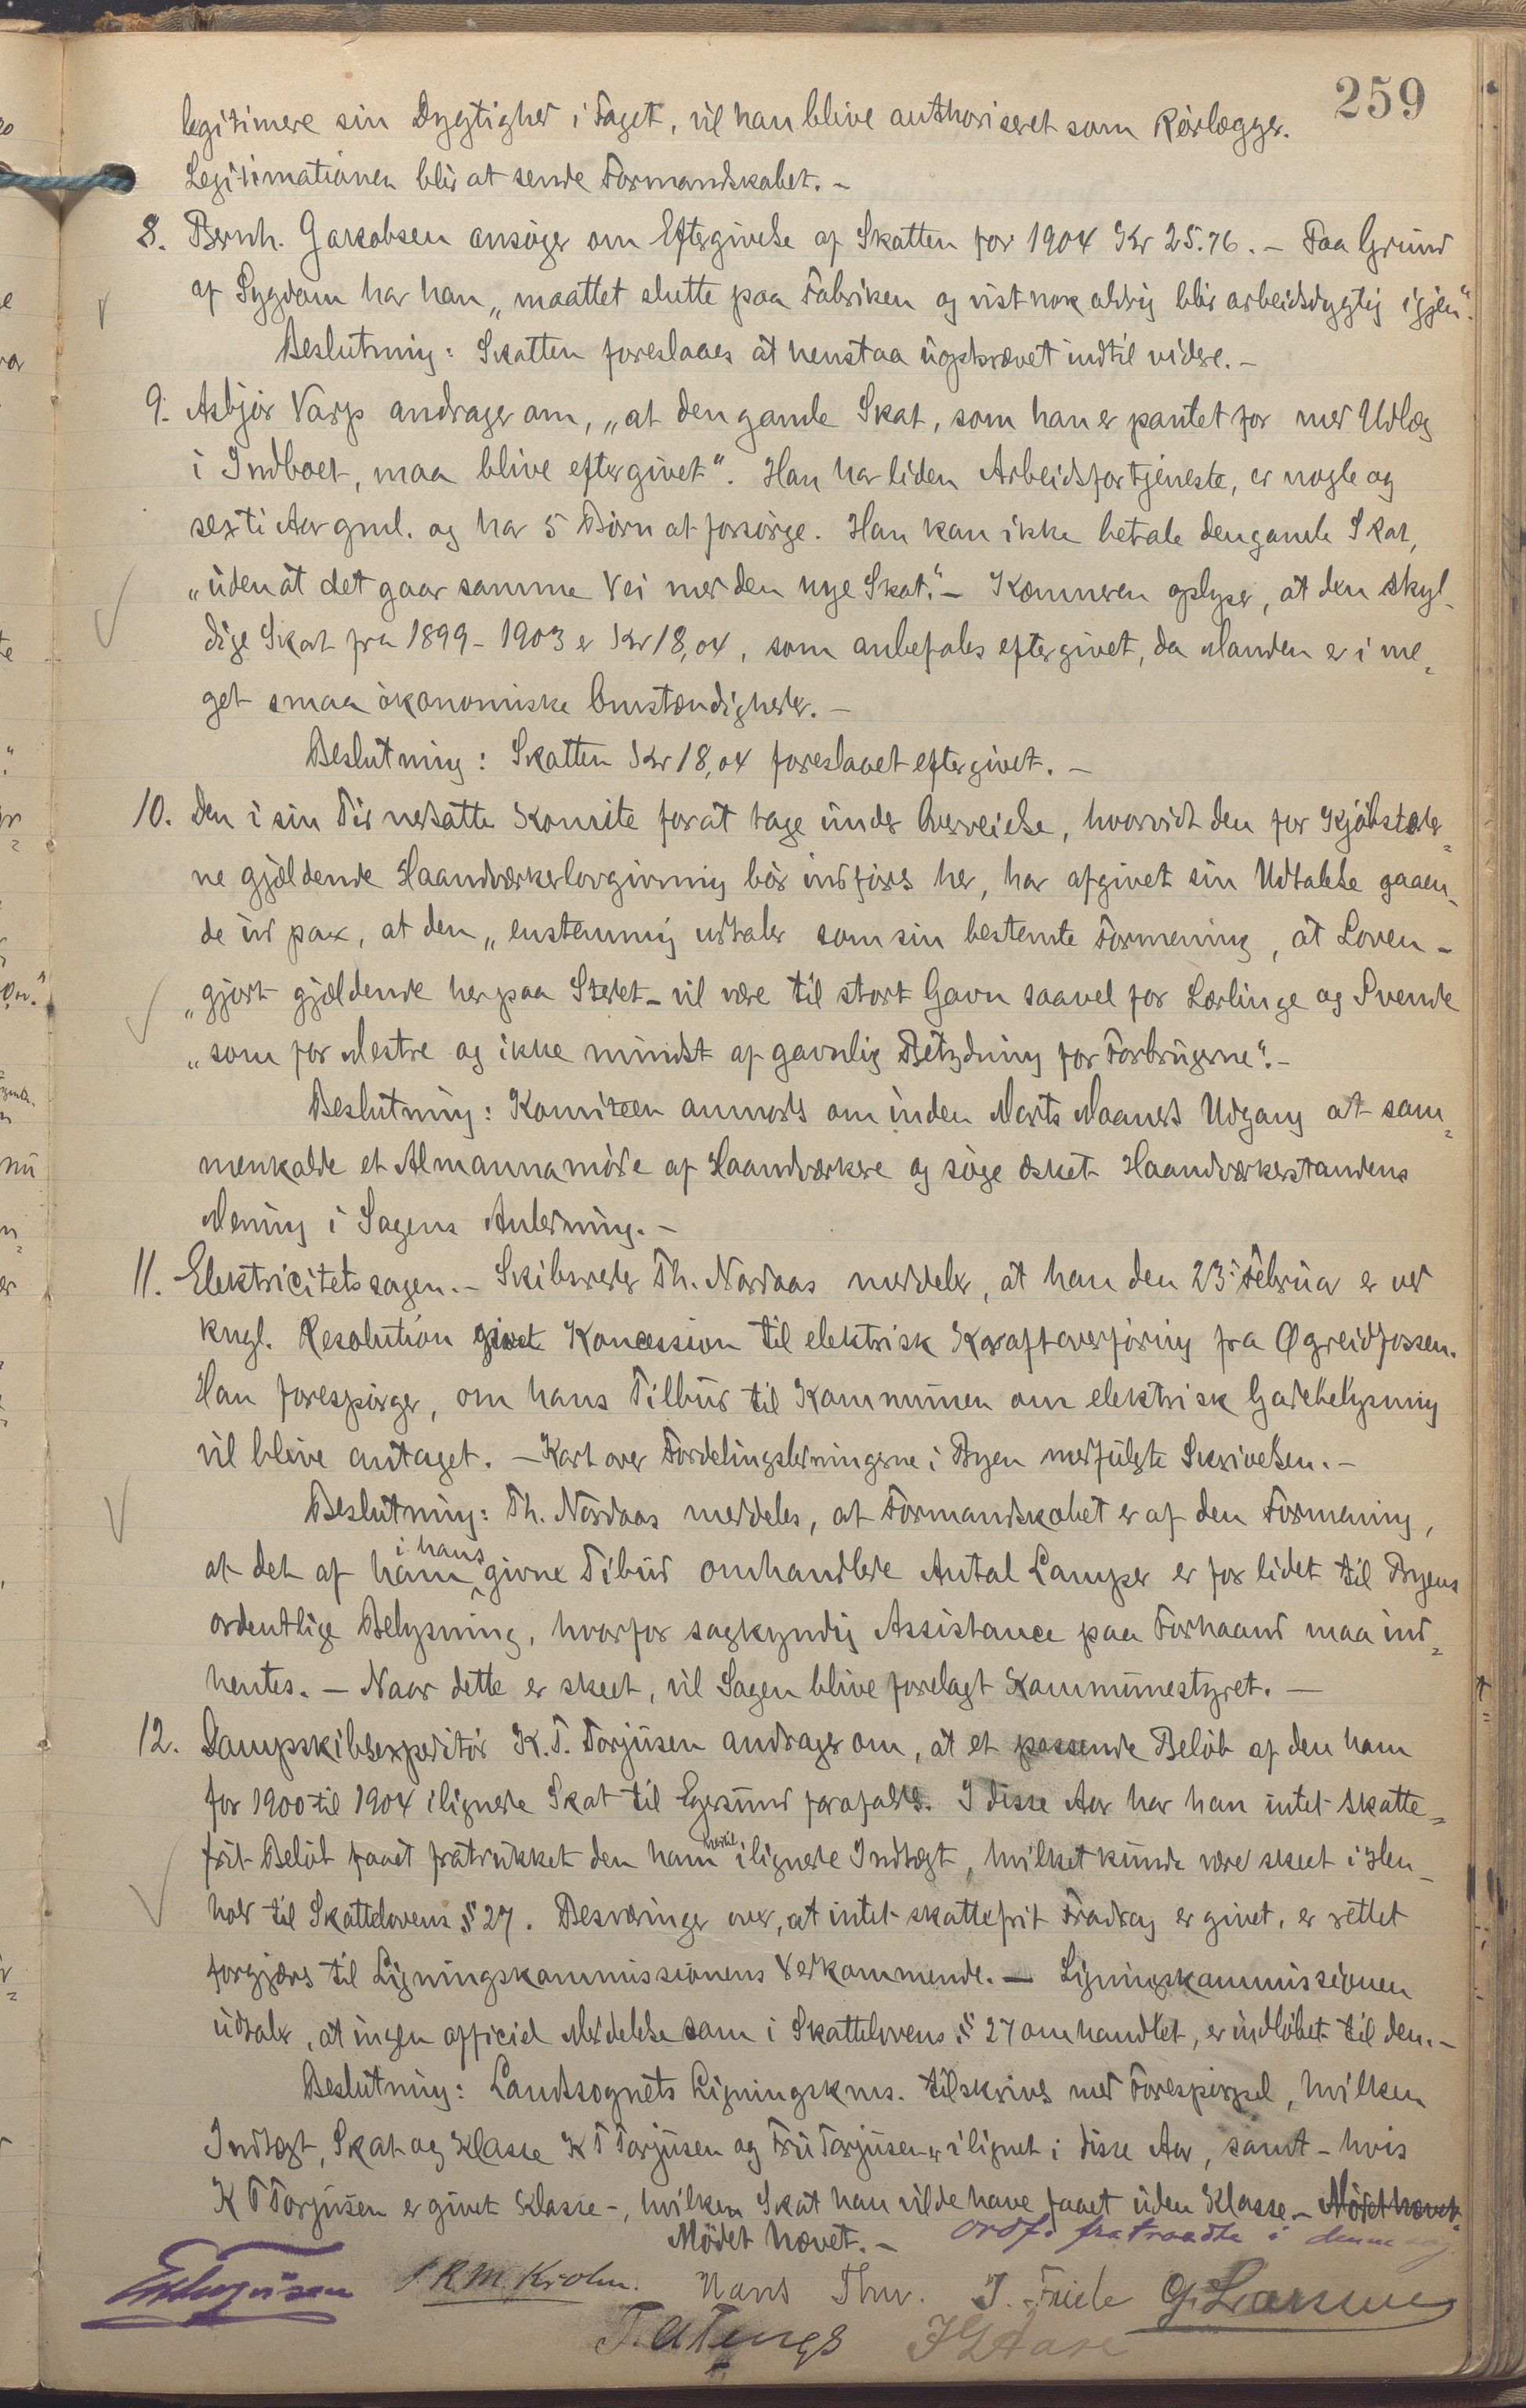 259
legitimere sin Dygtighed i Faget, vil han blive authoriseret som Rørlægger.
Legitimationen blir at sende Formandskabet. –
8. Bernh. Jakobsen ansøger om Eftergivelse af Skatten for 1904 Kr 25.76. – Paa Grund
af Sygdom har han „maattet slutte paa Fabriken og vistnok aldrig blir arbeidsdygtig igjen".
Beslutning: Skatten foreslaaes at henstaa uopkrævet indtil videre. –
9. Asbjør Varp andrager om, „at den gamle Skat, som han er pantet for med Udlæg
i Indboet, maa blive eftergivet". Han har liden Arbeidsfortjeneste, er nogle og
sexti Aar gml. og har 5 Børn at forsørge. Han kan ikke betale den gamle Skat,
„uden at det gaar samme Vei med den nye Skat." – Kæmneren oplyser, at den skyl-
dige Skat fra 1899 – 1903 er Kr 18,04, som anbefales eftergivet, da Manden er i me-
get smaa økonomiske Omstændigheder. –
Beslutning: Skatten Kr 18,04 foreslaaet eftergivet. –
10. Den i sin Tid nedsatte Komite for at tage under Overveielse, hvorvidt den for Kjøbstæder-
ne gjældende Haandværkerlovgivning bør indføres her, har afgivet sin Udtalelse gaaen-
de ud paa, at den „enstemmig udtaler som sin bestemte Formening, at Loven –
„gjort gjældende her paa Stedet – vil være til stort Gavn saavel for Lærlinge og Svende
„som for Mestre og ikke mindst af gavnlig Betydning for Forbrugerne". –
Beslutning: Komiteen anmodes om inden Marts Maaneds Udgang at sam-
menkalde et Almannamøde af Haandværkere og søge æsket Haandværkerstandens
Mening i Sagens Anledning. –
11. Elektricitetssagen. – Skibsreder Th. Nordaas meddeler, at han den 23: Februar er ved
kngl. Resolution givet Koncession til elektrisk Kraftoverføring fra Øgreidfossen.
Han forespørger, om hans Tilbud til Kommunen om elektrisk Gadebelysning
vil blive antaget. – Kart over Fordelingsledningerne i Byen medfulgte Skrivelsen. –
Beslutning: Th. Nordaas meddeles, at Formandskabet er af den Formening,
at det af ham i hans givne Tilbud omhandlede Antal Lamper er for lidet til Byens
ordentlige Belysning, hvorfor sagkyndig Assistance paa Forhaand maa ind-
hentes. – Naar dette er skeet, vil Sagen blive forelagt Kommunestyret. –
12. Dampskibsexpeditør K. T. Torjusen andrager om, at et passende Beløb af den ham
for 1900 til 1904 ilignede Skat til Egersund frafaldes. I disse Aar har han intet skatte-
frit Beløb faaet fratrukket den ham ilignede Indtægt, hvilket kunde være skeet i Hen-
hold til Skattelovens § 27. Besværinger over, at intet skattefrit Fradrag er givet, er rettet
forgjæves til Ligningskommissionens Vedkommende. – Ligningskommissionen
udtaler, at ingen officiel Meddelelse som i Skattelovens § 27 omhandlet, er indløbet til den. –
Beslutning: Landsognets Ligningskms. tilskrives med Forespørgsel, hvilken
Indtægt, Skat og Klasse K T Torjusen og Fru Torjusen er ilignet i disse Aar, samt – hvis
K T Torjusen er givet Klasse –, hvilken Skat han vilde have faaet uden Klasse. – Mødet hævet.
Mødet hævet. – Ordf. fratraadte i denne sag
P R M. Krohn. Hans Thu. J. Friele G. Larsen
T. A Tengs